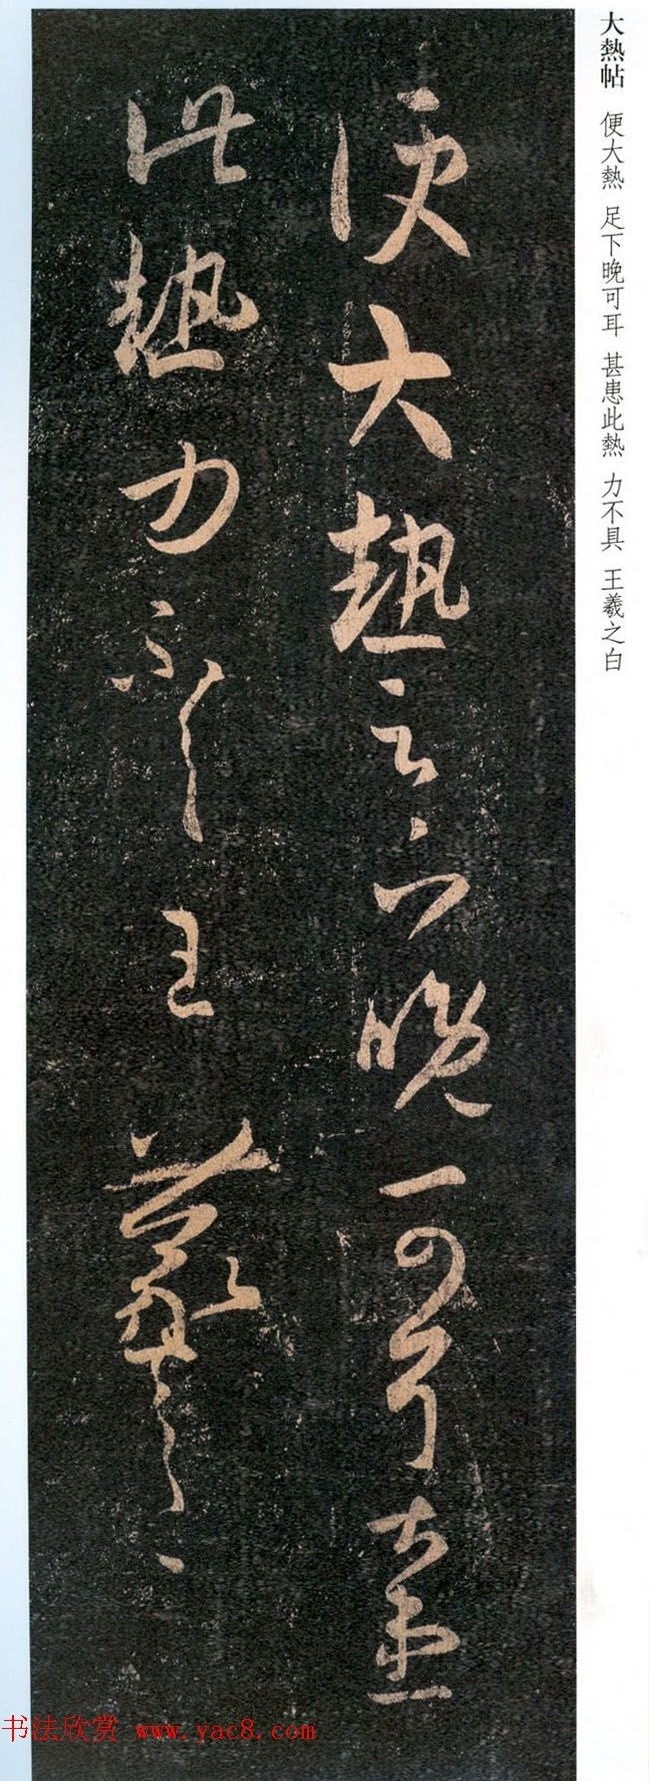 大熱帖 便大熱 足下晚可耳 甚患此熱 力不具 王羲之白
便大熱足下晚可耳甚患
此熱力不具王羲之白
书法欣赏 www.yac8.com